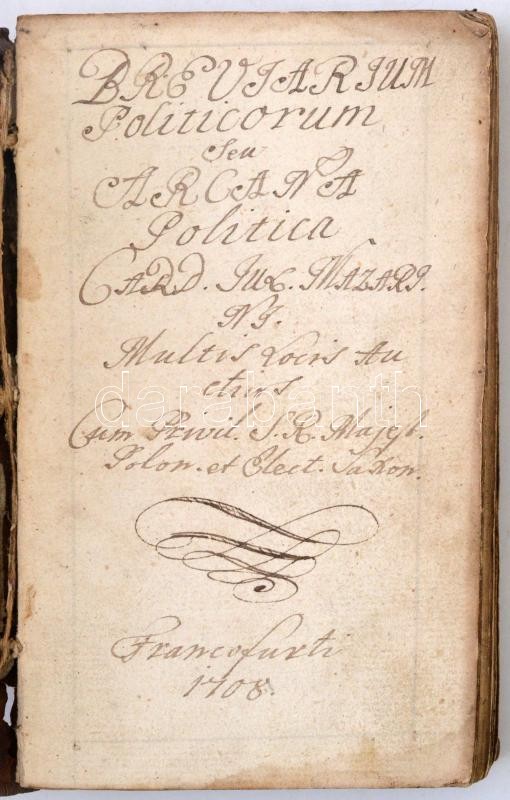 BREVIARIUM
Politicorum
seu
ARCANA
Politica
CARD. JUL. MAZARI.
NI.
Multis Locis Au
ctius
Cum Privil. S. R. Majest.
Polon. et Elect. Saxon.
Francofurti
1708.
darabanth